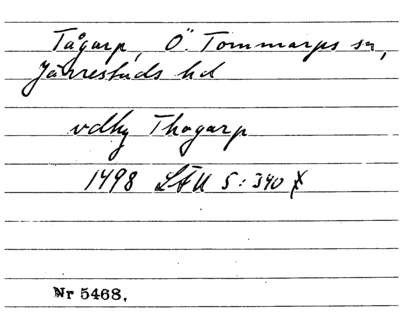 Tågarp, Ö. Tommarps sn,
Järrestads hd
vdhg Thogarp
1498 LÄU S: 340
Nr 5468.